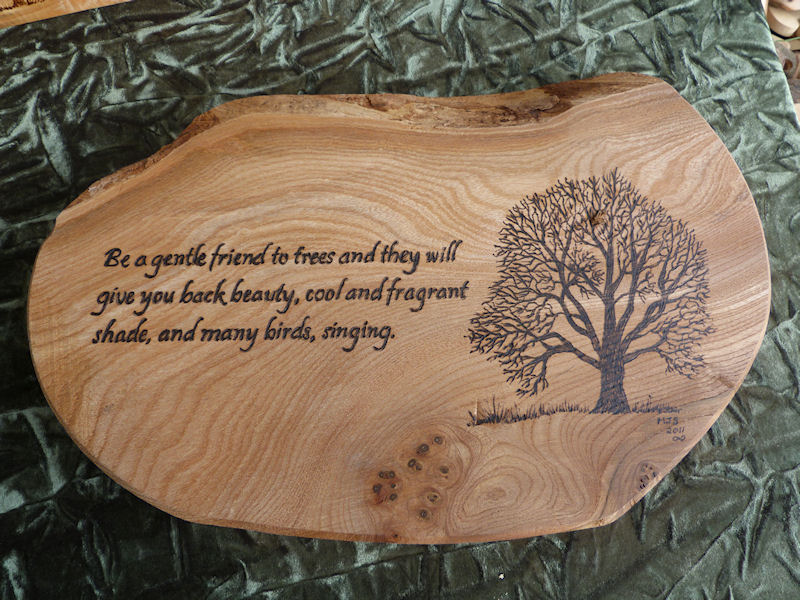 Be a gentle friend to trees and they will
give you back beauty, cool and fragrant
shade, and many birds, singing.
MJS
2011